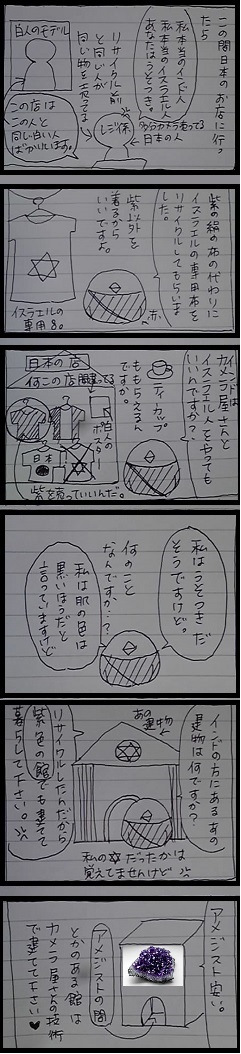 この間日本のお店に行ったら
私本当のインド人
私本当のイスラエル人
あなたはうそつき。
白人のモデル
リサイクル前と同じ人が同じ物を売ってるよ
レジ係
日本の人
この店はこの人と同じ白い人ばかりいます。
紫の絹の布の代わりに
イスラエルの専用布を
リサイクルしてもらいました。
紫以外を着るからいいですよ。
赤
イスラエルの専用
カメラ屋さんと
イスラエル人をやっても
いいんですか?
ティーカップ
ももらえるんですか。
日本の店
何この店間違ってる
白人のポスター
日本
紫を売っていいんだ。
私はうそつきだ
そうですけど。
何のこと
なんですか…?
私は肌の色は
黒いほうだと
言っていますけど
インドの方にあるあの
建物は何ですか?
あの建物
リサイクルしたんだから
紫色の館でも建てて
暮らして下さい。
私の✡だったかは
覚えてませんけど
アメジスト安い。
アメジストの間
とかのある館は
カメラ屋さんの技術
で建てて下さい♥